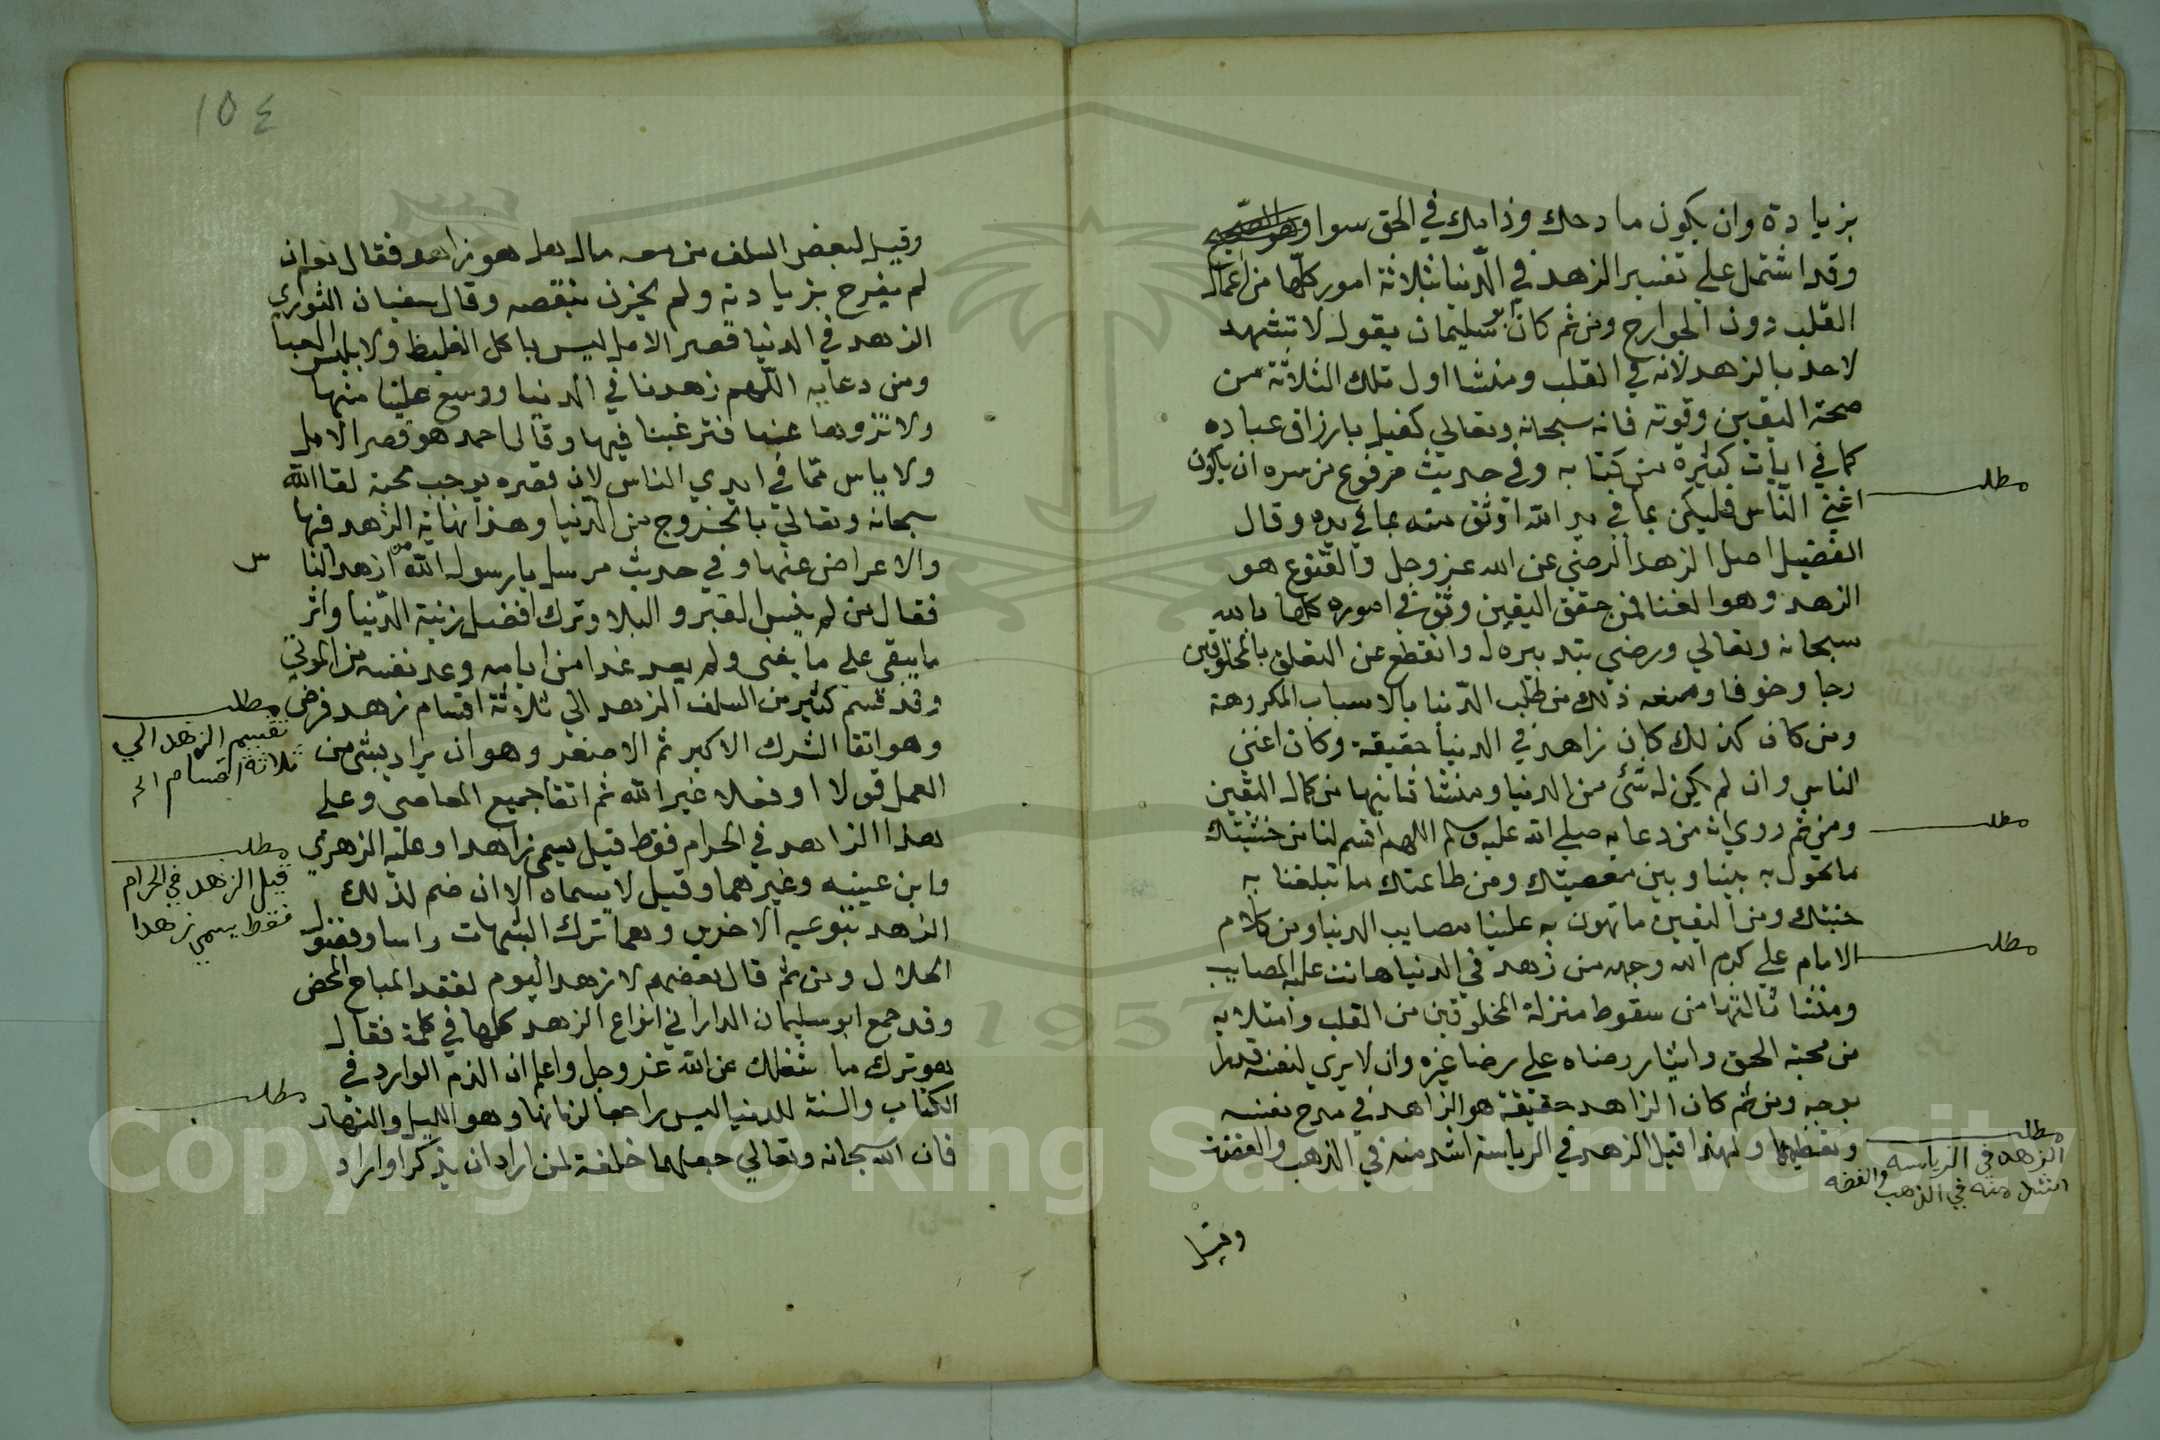 بزيادة وان يكون مادحك وذامك في الحق سوا
وقد اشتمل علي تفسير الزهد في الدنيا بثلاثة امور كلها من اعمال
القلب دون الجوارح ومن ثم كان ابو سليمان يقول لا تشهد
لاحد بالزهد لانه في القلب ومنشا اول تلك الثلاثة من
صحة اليقين وقوته فانه سبحانه وتعالي كفيل بارزاق عباده
كما في ايات كثيرة من كتابه وفي حديث مرفوع من سره ان يكون
اغني الناس فليكن بما في يد الله اوثق منه بما في يده وقال
الفضيل اصل الزهد الرضي عن الله عز وجل والقنوع هو
الزهد وهو الغنا فمن حقق اليقين وثق في اموره كلها بالله
سبحانه وتعالي ورضي بتدبيره له وانقطع عن التعلق بالمخلوقين
رجا وخوفا ومنعه ذلك من طلب الدنيا بالاسباب المكروهة
ومن كان كذلك كان زاهد في الدنيا حقيقة وكان اغني
الناس وان لم يكن له شئ من الدنيا ومنشا ثانيها من كمال اليقين
ومن ثم روي ان من دعايه صلي الله عليه وسلم اللهم اقسم لنا من خشيتك
ما تحول به بيننا وبين معصيتك ومن طاعتك ما تبلغنا به
جنتك ومن اليقين ما تهون به علينا مصايب الدنيا ومن كلام
الامام علي كرم الله وجهه من زهد في الدنيا هانت عليه المصايب
ومنشا ثالثها من سقوط منزلة المخلوقين من القلب وامتلايه
من محبة الحق وايثار رضاه علي رضا غيره وان لا يري لنفسه قدرا
بوجه ومن ثم كان الزاهد حقيقة هو الزاهد في مدح نفسه
وتعظيمها ولهذا قيل الزهد في الرياسة اشد منه في الذهب والفضة
مطلب
مطلب
مطلب
مطلب
الزهد في الرياسه
اشد منه في الذهب والفضه
وقيل
١٥٤
وقيل لبعض السلف من معه مال هل هو زاهد فقال نعم ان
لم يفرح بزيادته ولم يحزن بنقصه وقال سفيان الثوري
الزهد في الدنيا قصر الامل ليس باكل الغليظ ولا بلبس العبا
ومن دعايه اللهم زهدنا في الدنيا ووسع علينا منها
ولا تزوها عنها فترغبنا فيها وقال احمد هو قصر الامل
ولا ياس مما في ايدي الناس لان قصره يوجب محبة لقا الله
سبحانه وتعالي بالخروج من الدنيا وهذا نهاية الزهد فيها
والاعراض عنها وفي حديث مرسل يا رسول الله من ازهد الناس
فقال من لم ينس القبر والبلا وترك افضل زينة الدنيا واثر
ما يبقي علي ما يفني ولم يعد غدا من ايامه وعد نفسه من الموتي
وقد قسم كثير من السلف الزهد الي ثلاثة اقسام زهد فرض
وهو اتقا الشرك الاكبر ثم الاصغر وهو ان يراد بشئ من
العمل قولا او فعلا غير الله ثم اتقا جميع المعاصي وعلي
هذا الزاهد في الحرام فقط قيل يسمي زاهدا وعليه الزهري
وابن عيينه وغيرهما وقيل لا يسماه الا ان ضم لذلك
الزهد بنوعيه الاخرين وهما ترك الشبهات راسا وفضول
الحلال ومن ثم قال بعضهم لا زهد اليوم لفقد المباح المحض
وقد جمع ابو سليمان الداراني انواع الزهد كلها في كلمة فقال
هو ترك ما شغلك عن الله عز وجل واعلم ان الذم الوارد في
الكتاب والسنة للدنيا ليس راجعا لزمانها وهو الليل والنهار
فان الله سبحانه وتعالي جعلهما خلفة لمن اراد ان يذكر او اراد
مطلب
تقسيم الزهد الي
ثلاثة اقسام الخ
مطلب
قيل الزهد في الحرام
فقط يسمي زهدا
مطلب
1957
Copyright © King Saud University